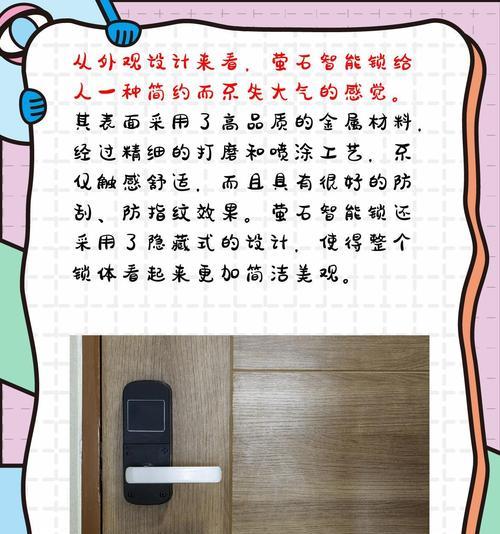 从外观设计来看，萤石智能锁给
人一种简约而不失大气的感觉。
其表面采用了高品质的金属材料，
经过精细的打磨和喷涂工艺，不
仅触感舒适，而且具有很好的防
刮、防指纹效果。萤石智能锁还
采用了隐藏式的设计，使得整个
锁体看起来更加简洁美观。